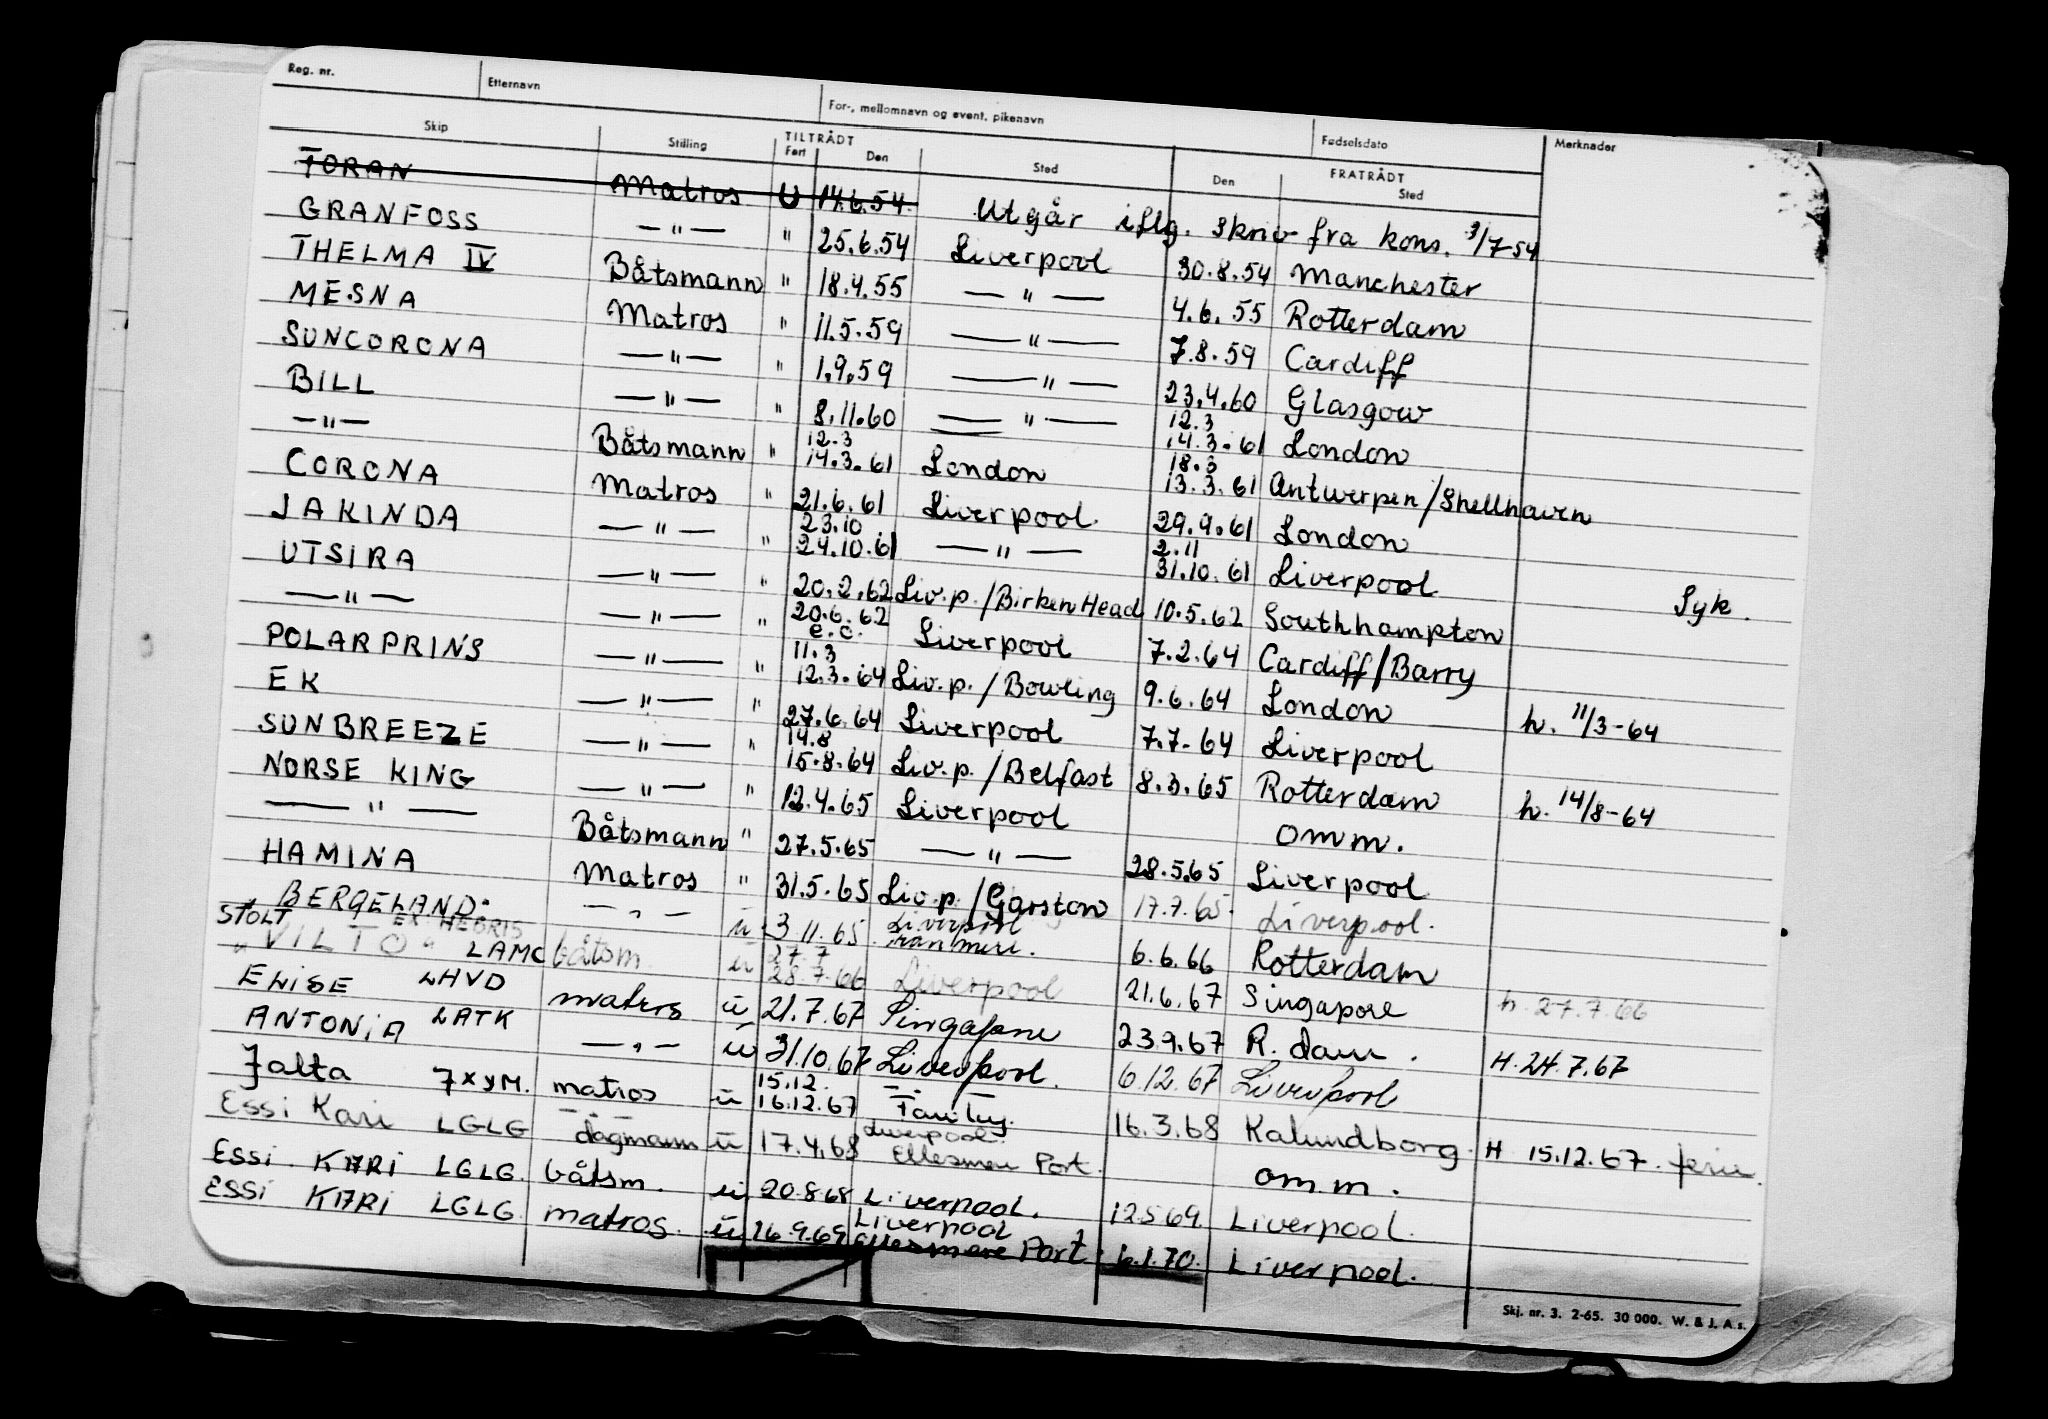 Reg. nr. Etternavn For-, mellomnavn og event. pikenavn Fødselsdato Merknader
Skip Stilling TILTRÅDT Fart Den Sted FRATRÅDT Den Sted
TORAN Matros U 14.6.54. Utgår iflg. skriv fra kons. 3/7-54
GRANFOSS —"— " 25.6.54 Liverpool 30.8.54 Manchester
THELMA IV Båtsmann " 18.4.55 —"— 4.6.55 Rotterdam
MESNA Matros " 11.5.59 —"— 7.8.59 Cardiff
SUNCORONA —"— " 1.9.59 —"— 23.4.60 Glasgow
BILL —"— " 8.11.60 —"— 12.3 14.3.61 London
—"— Båtsmann " 12.3 14.3.61 London 18.3 13.3.61 Antwerpen/Shellhaven
CORONA Matros " 21.6.61 Liverpool 29.9.61 London
JAKINDA —"— " 23.10 24.10.61 —"— 2.11 31.10.61 Liverpool Syk.
UTSIRA —"— " 20.2.62 Liv.p./BirkenHead 10.5.62 Southhampton
—"— —"— " 20.6.62 e.c. Liverpool 7.2.64 Cardiff/Barry
POLARPRINS —"— " 11.3 12.3.64 Liv.p./Bowling 9.6.64 London h. 11/3-64
EK —"— " 27.6.64 Liverpool 7.7.64 Liverpool
SUNBREEZE —"— " 14.8 15.8.64 Liv.p./Belfast 8.3.65 Rotterdam h. 14/8-64
NORSE KING —"— " 12.4.65 Liverpool omm.
—"— Båtsmann " 27.5.65 —"— 28.5.65 Liverpool
HAMINA Matros " 31.5.65 Liv.p./Garston 17.7.65. Liverpool.
BERGELAND. —"— u 3.11.65 Liverpool 6.6.66 Rotterdam
STOLT EX HEGRIS
"VILTO" LAMC båtsm u 27.7 28.7.66 Liverpool 21.6.67 Singapore h. 27.7.66
ELISE LHVD matros u 21.7.67 Singapore 23.9.67 R.dam. H. 24.7.67
ANTONIA LATK —"— u 31.10.67 Liverpool. 6.12.67 Liverpool
Jalta 7XYM. matros u 15.12. 16.12.67 16.3.68 Kalundborg. H 15.12.67. ferie.
ESSi Kari LGLG dagmann u 17.4.68 Liverpool. Ellesmere Port. om.m.
ESSi KARI LGLG. båtsm. u 20.8.68 Liverpool. 12.5.69. Liverpool.
ESSi KARI LGLG. matros. u 16.9.69 Liverpool Ellesmere Port. 6.1.70. Liverpool.
Skj. nr. 3. 2-65. 30 000. W. & J. A.s.